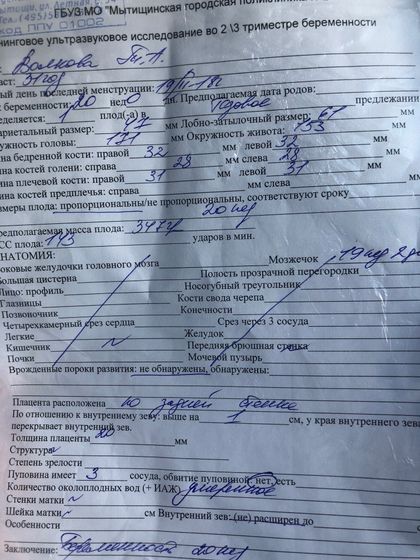 ГБУЗ МО "Мытищинская городская поликлиника
КОД ЛПУ 01002
нинговое ультразвуковое исследование во 2 \3 триместре беременности
Волкова Т. А.
аст: 31 год
ый день последней менструации: 19/III-18г
беременности: 20 нед 0 дн. Предполагаемая дата родов:
еделяется: 1 плод(-а) в головное предлежании
ариетальный размер: 47 мм Лобно-затылочный размер: 61
ружность головы: 171 мм Окружность живота: 153
ина бедренной кости: правой 32 мм левой 32
ина костей голени: справа 28 мм слева 28
ина плечевой кости: правой 31 мм левой 31
ина костей предплечья: справа мм слева
меры плода: пропорциональны/не пропорциональны, соответствуют сроку
20 нед
едполагаемая масса плода: 347г
СС плода: 143 ударов в мин.
НАТОМИЯ: Мозжечок 19 нед 2 дн
оковые желудочки головного мозга
большая цистерна Полость прозрачной перегородки
Лицо: профиль Носогубный треугольник
Глазницы Кости свода черепа
Позвоночник Конечности
Четырехкамерный срез сердца Срез через 3 сосуда
Легкие Желудок
Кишечник Передняя брюшная стенка
Почки Мочевой пузырь
Врожденные пороки развития: не обнаружены, обнаружены:
Плацента расположена по задней стенке
По отношению к внутреннему зеву: выше на 1 см, у края внутреннего зева
перекрывает внутренний зев.
Толщина плаценты 20 мм
Структура
Степень зрелости
Пуповина имеет 3 сосуда, обвитие пуповиной: нет, есть
Количество околоплодных вод (+ ИАЖ) умеренное
Стенки матки
Шейка матки см Внутренний зев: (не) расширен до
Особенности
Заключение: Беременность 20 нед